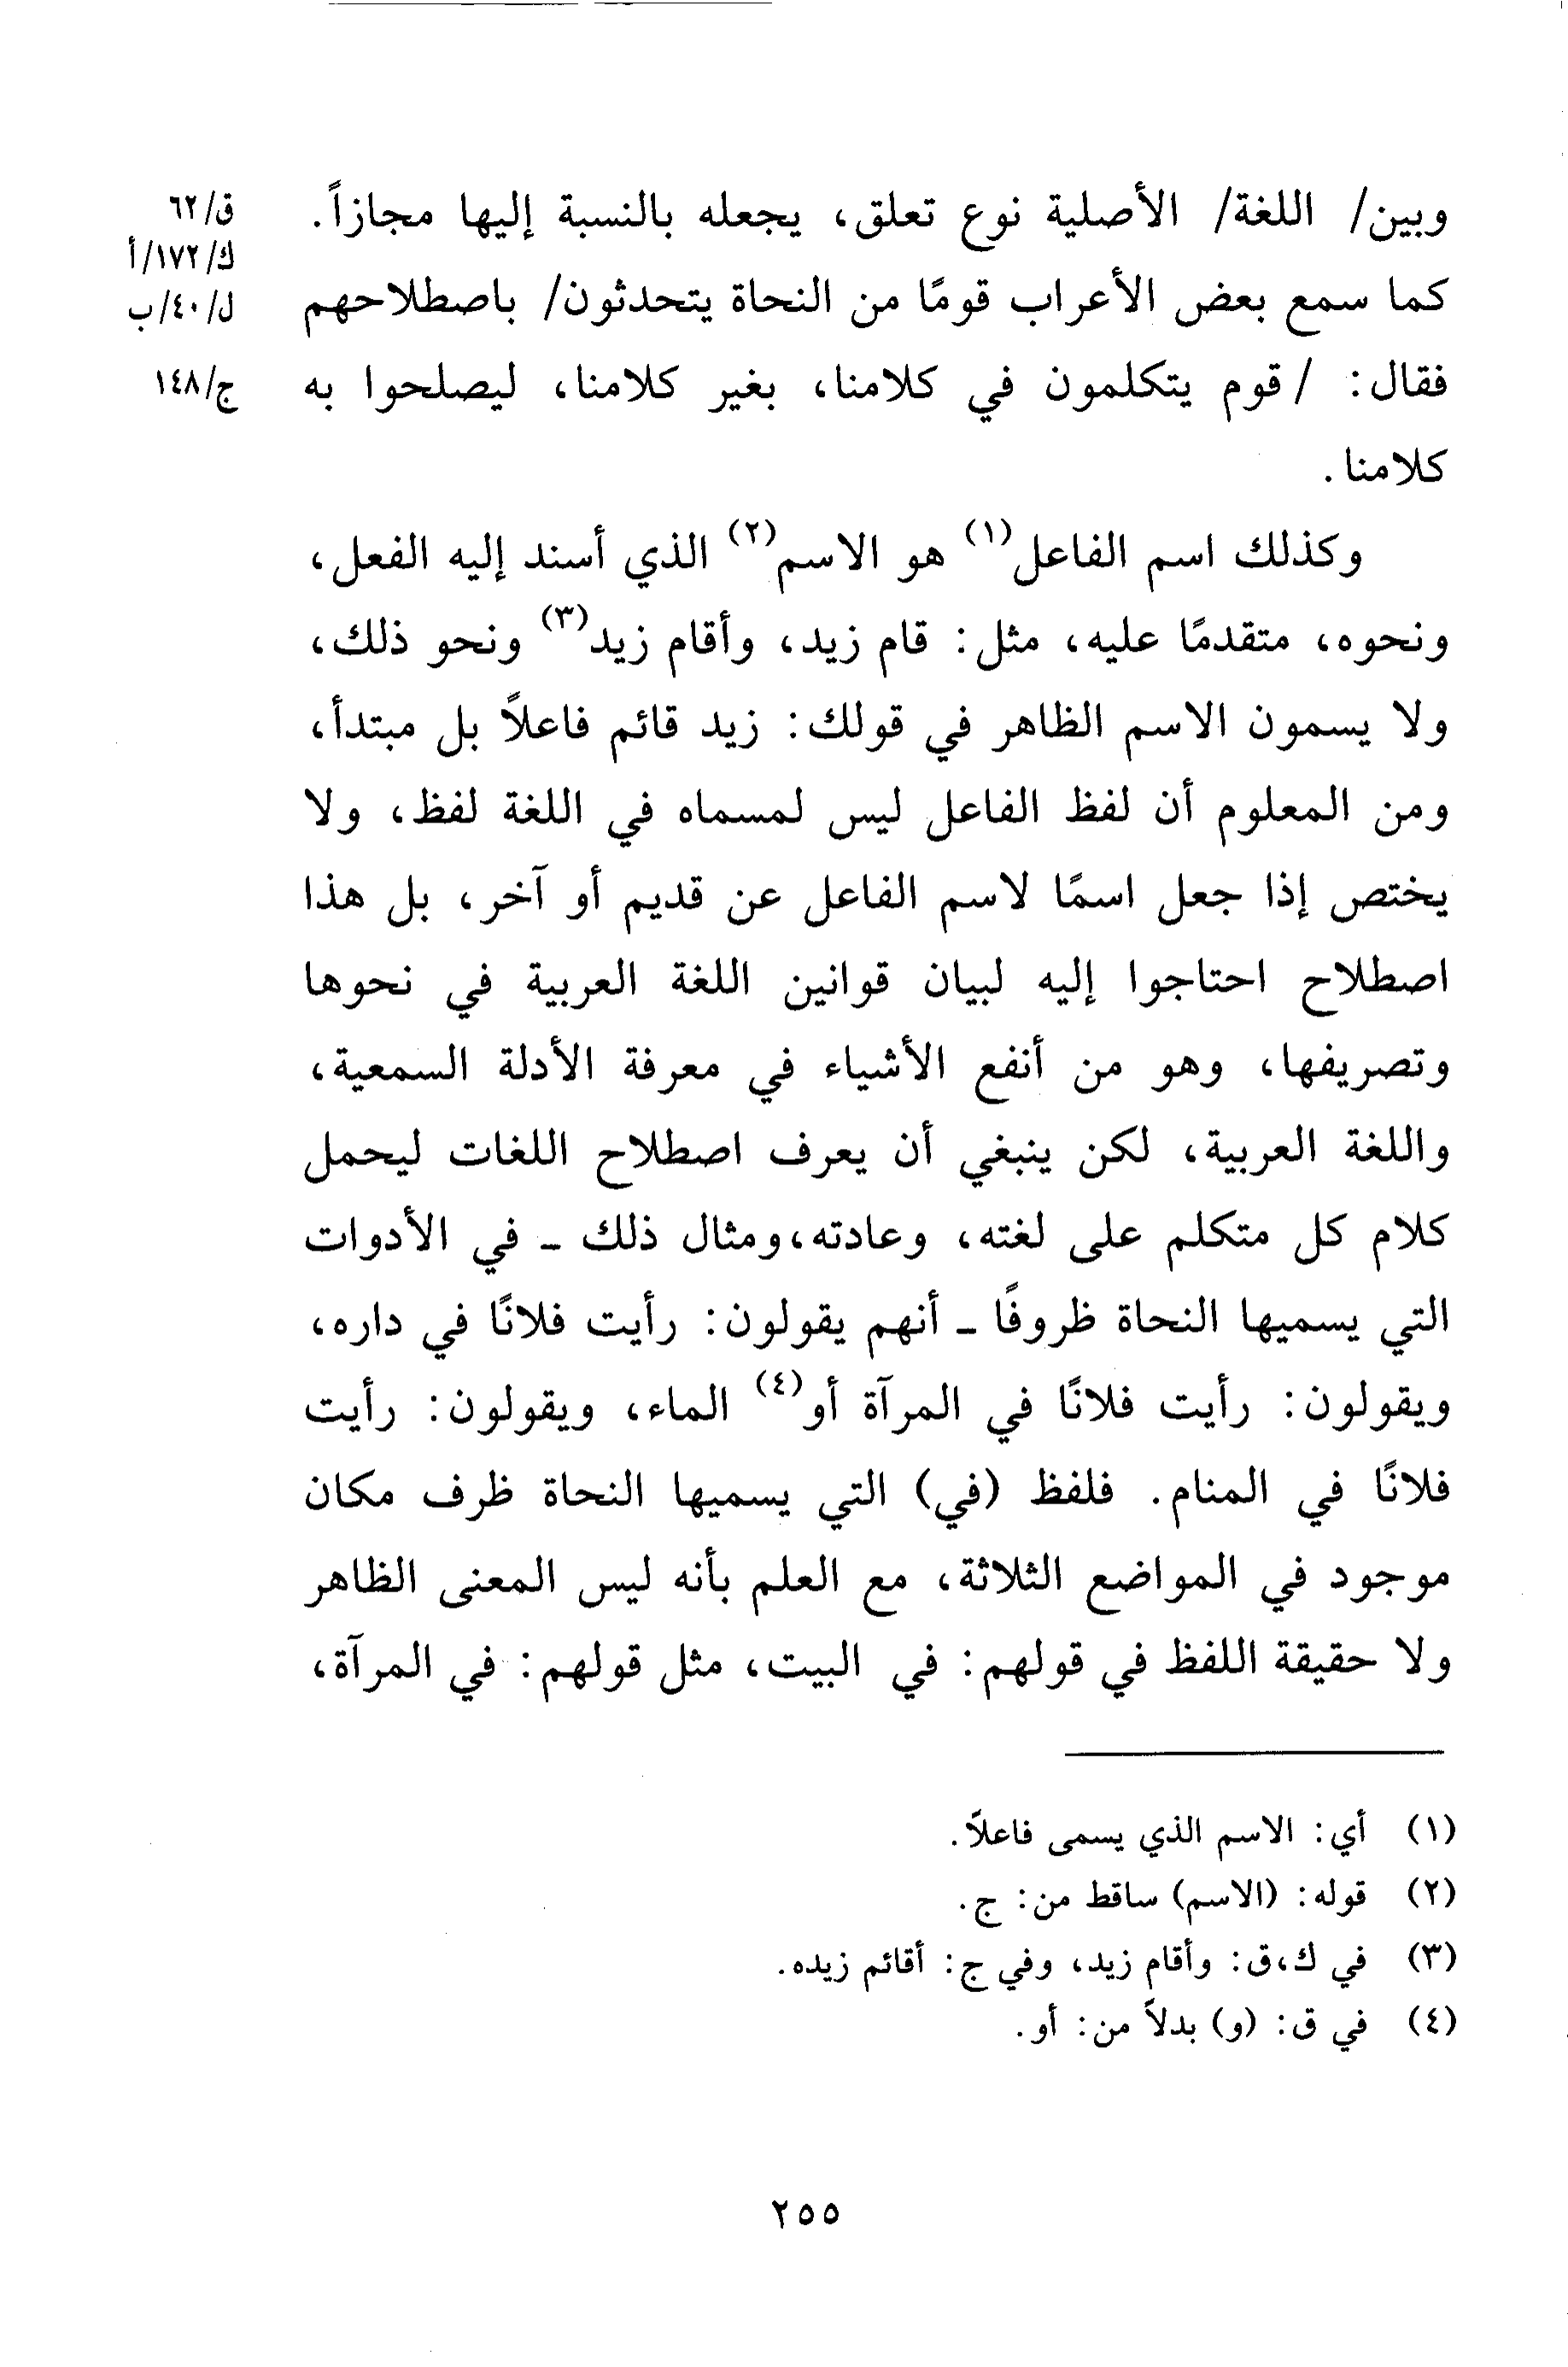 وبين/ اللغة/ الأصلية نوع تعلق، يجعله بالنسبة إليها مجازاً.
ق/٦٢
ك/١٧٢/أ
كما سمع بعض الأعراب قومًا من النحاة يتحدثون/ باصطلاحهم
ل/٤٠/ب
فقال: /قوم يتكلمون في كلامنا، بغير كلامنا، ليصلحوا به
ج/١٤٨
كلامنا.
وكذلك اسم الفاعل(١) هو الاسم(٢) الذي أسند إليه الفعل،
ونحوه، متقدمًا عليه، مثل: قام زيد، وأقام زيد(٣) ونحو ذلك،
ولا يسمون الاسم الظاهر في قولك: زيد قائم فاعلاً بل مبتدأ،
ومن المعلوم أن لفظ الفاعل ليس لمسماه في اللغة لفظ، ولا
يختص إذا جعل اسمًا لاسم الفاعل عن قديم أو آخر، بل هذا
اصطلاح احتاجوا إليه لبيان قوانين اللغة العربية في نحوها
وتصريفها، وهو من أنفع الأشياء في معرفة الأدلة السمعية،
واللغة العربية، لكن ينبغي أن يعرف اصطلاح اللغات ليحمل
كلام كل متكلم على لغته، وعادته،ومثال ذلك ـ في الأدوات
التي يسميها النحاة ظروفًا ـ أنهم يقولون: رأيت فلانًا في داره،
ويقولون: رأيت فلانًا في المرآة أو(٤) الماء، ويقولون: رأيت
فلانًا في المنام. فلفظ (في) التي يسميها النحاة ظرف مكان
موجود في المواضع الثلاثة، مع العلم بأنه ليس المعنى الظاهر
ولا حقيقة اللفظ في قولهم: في البيت، مثل قولهم: في المرآة،
(١) أي: الاسم الذي يسمى فاعلاً.
(٢) قوله: (الاسم) ساقط من: ج.
(٣) في ك،ق: وأقام زيد، وفي ج: أقائم زيده.
(٤) في ق: (و) بدلاً من: أو.
٢٥٥